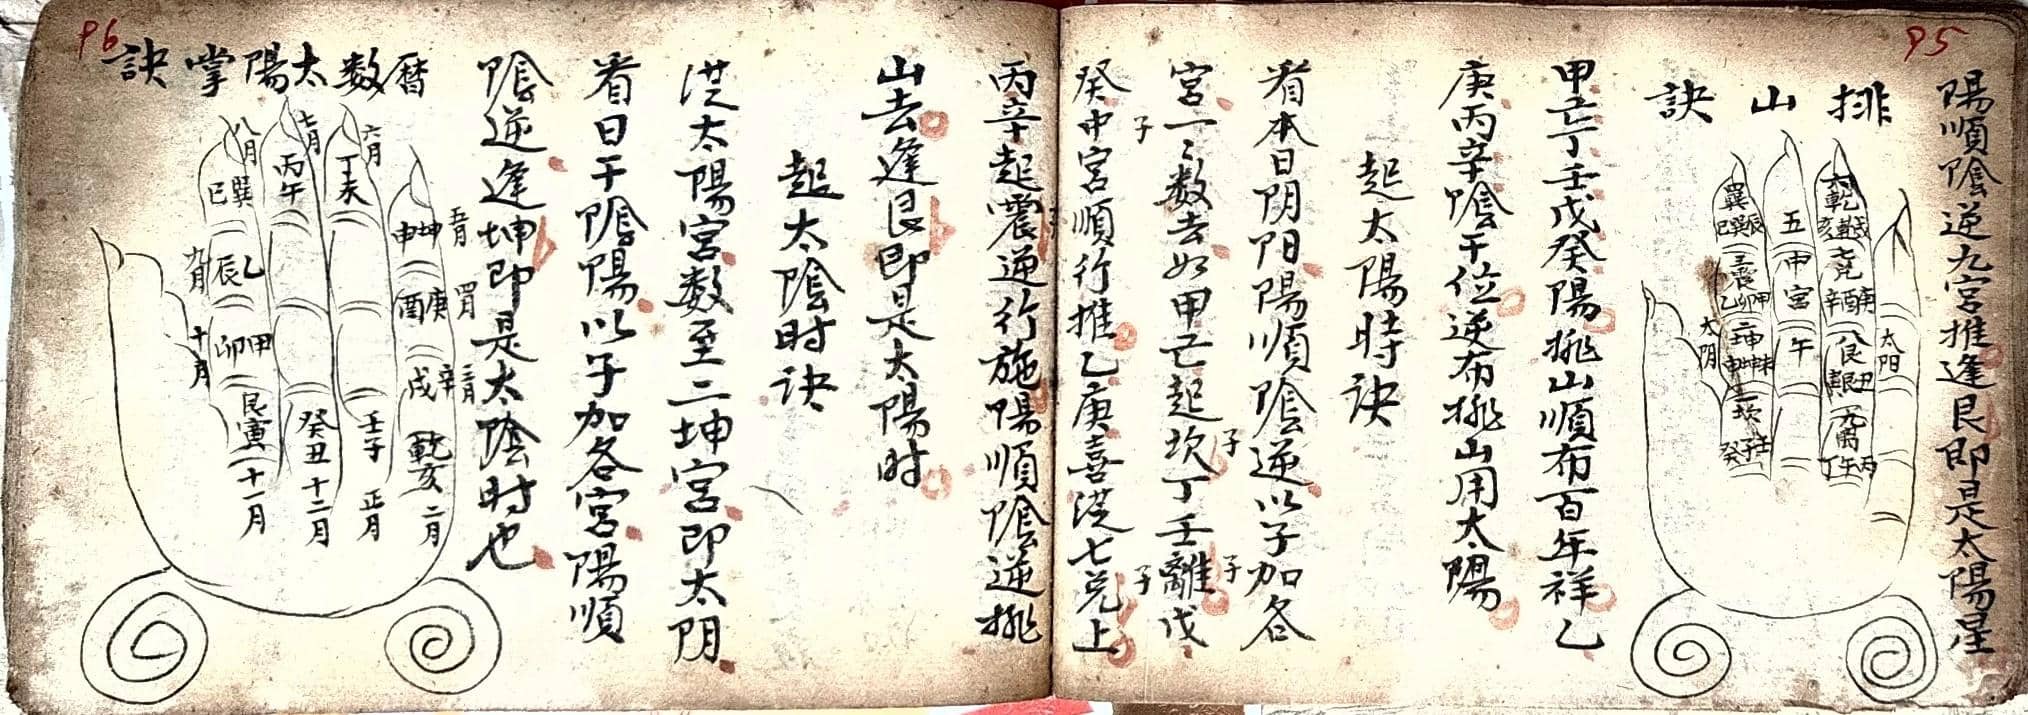 P5
陽順陰逆九宮推逢艮即是太陽星
排山訣
六乾戌
亥
七兌
庚酉辛
八艮
丑艮
九离
丙午丁
五中宮午
巽
辰巽巳
三震
甲卯乙
二坤
未坤申
一坎
壬子癸
太阳
太阴
甲己丁壬戊癸陽排山順布百年祥乙
庚丙辛陰干位逆布排山用太陽
起太陽時訣
看本日阴阳陽順陰逆以子加各
宮一二数去如甲己起坎子丁壬離子戊
癸中子宮順行推乙庚喜從七兌子上
丙辛起震逆行施陽順陰逆排
山去逢艮即是太陽时
起太陰时訣
從太陽宮数至二坤宮即太阴
看日干陰陽以子加各宮陽順
陰逆逢坤即是太陰时也
P6
曆数太陽掌訣
坤申 五月
庚酉 四月
辛戌 三月
乾亥 二月
六月
丁未
壬子 正月
七月
丙午
癸丑 十二月
八月
巽巳
乙辰 九月
甲卯 十月
艮寅 十一月